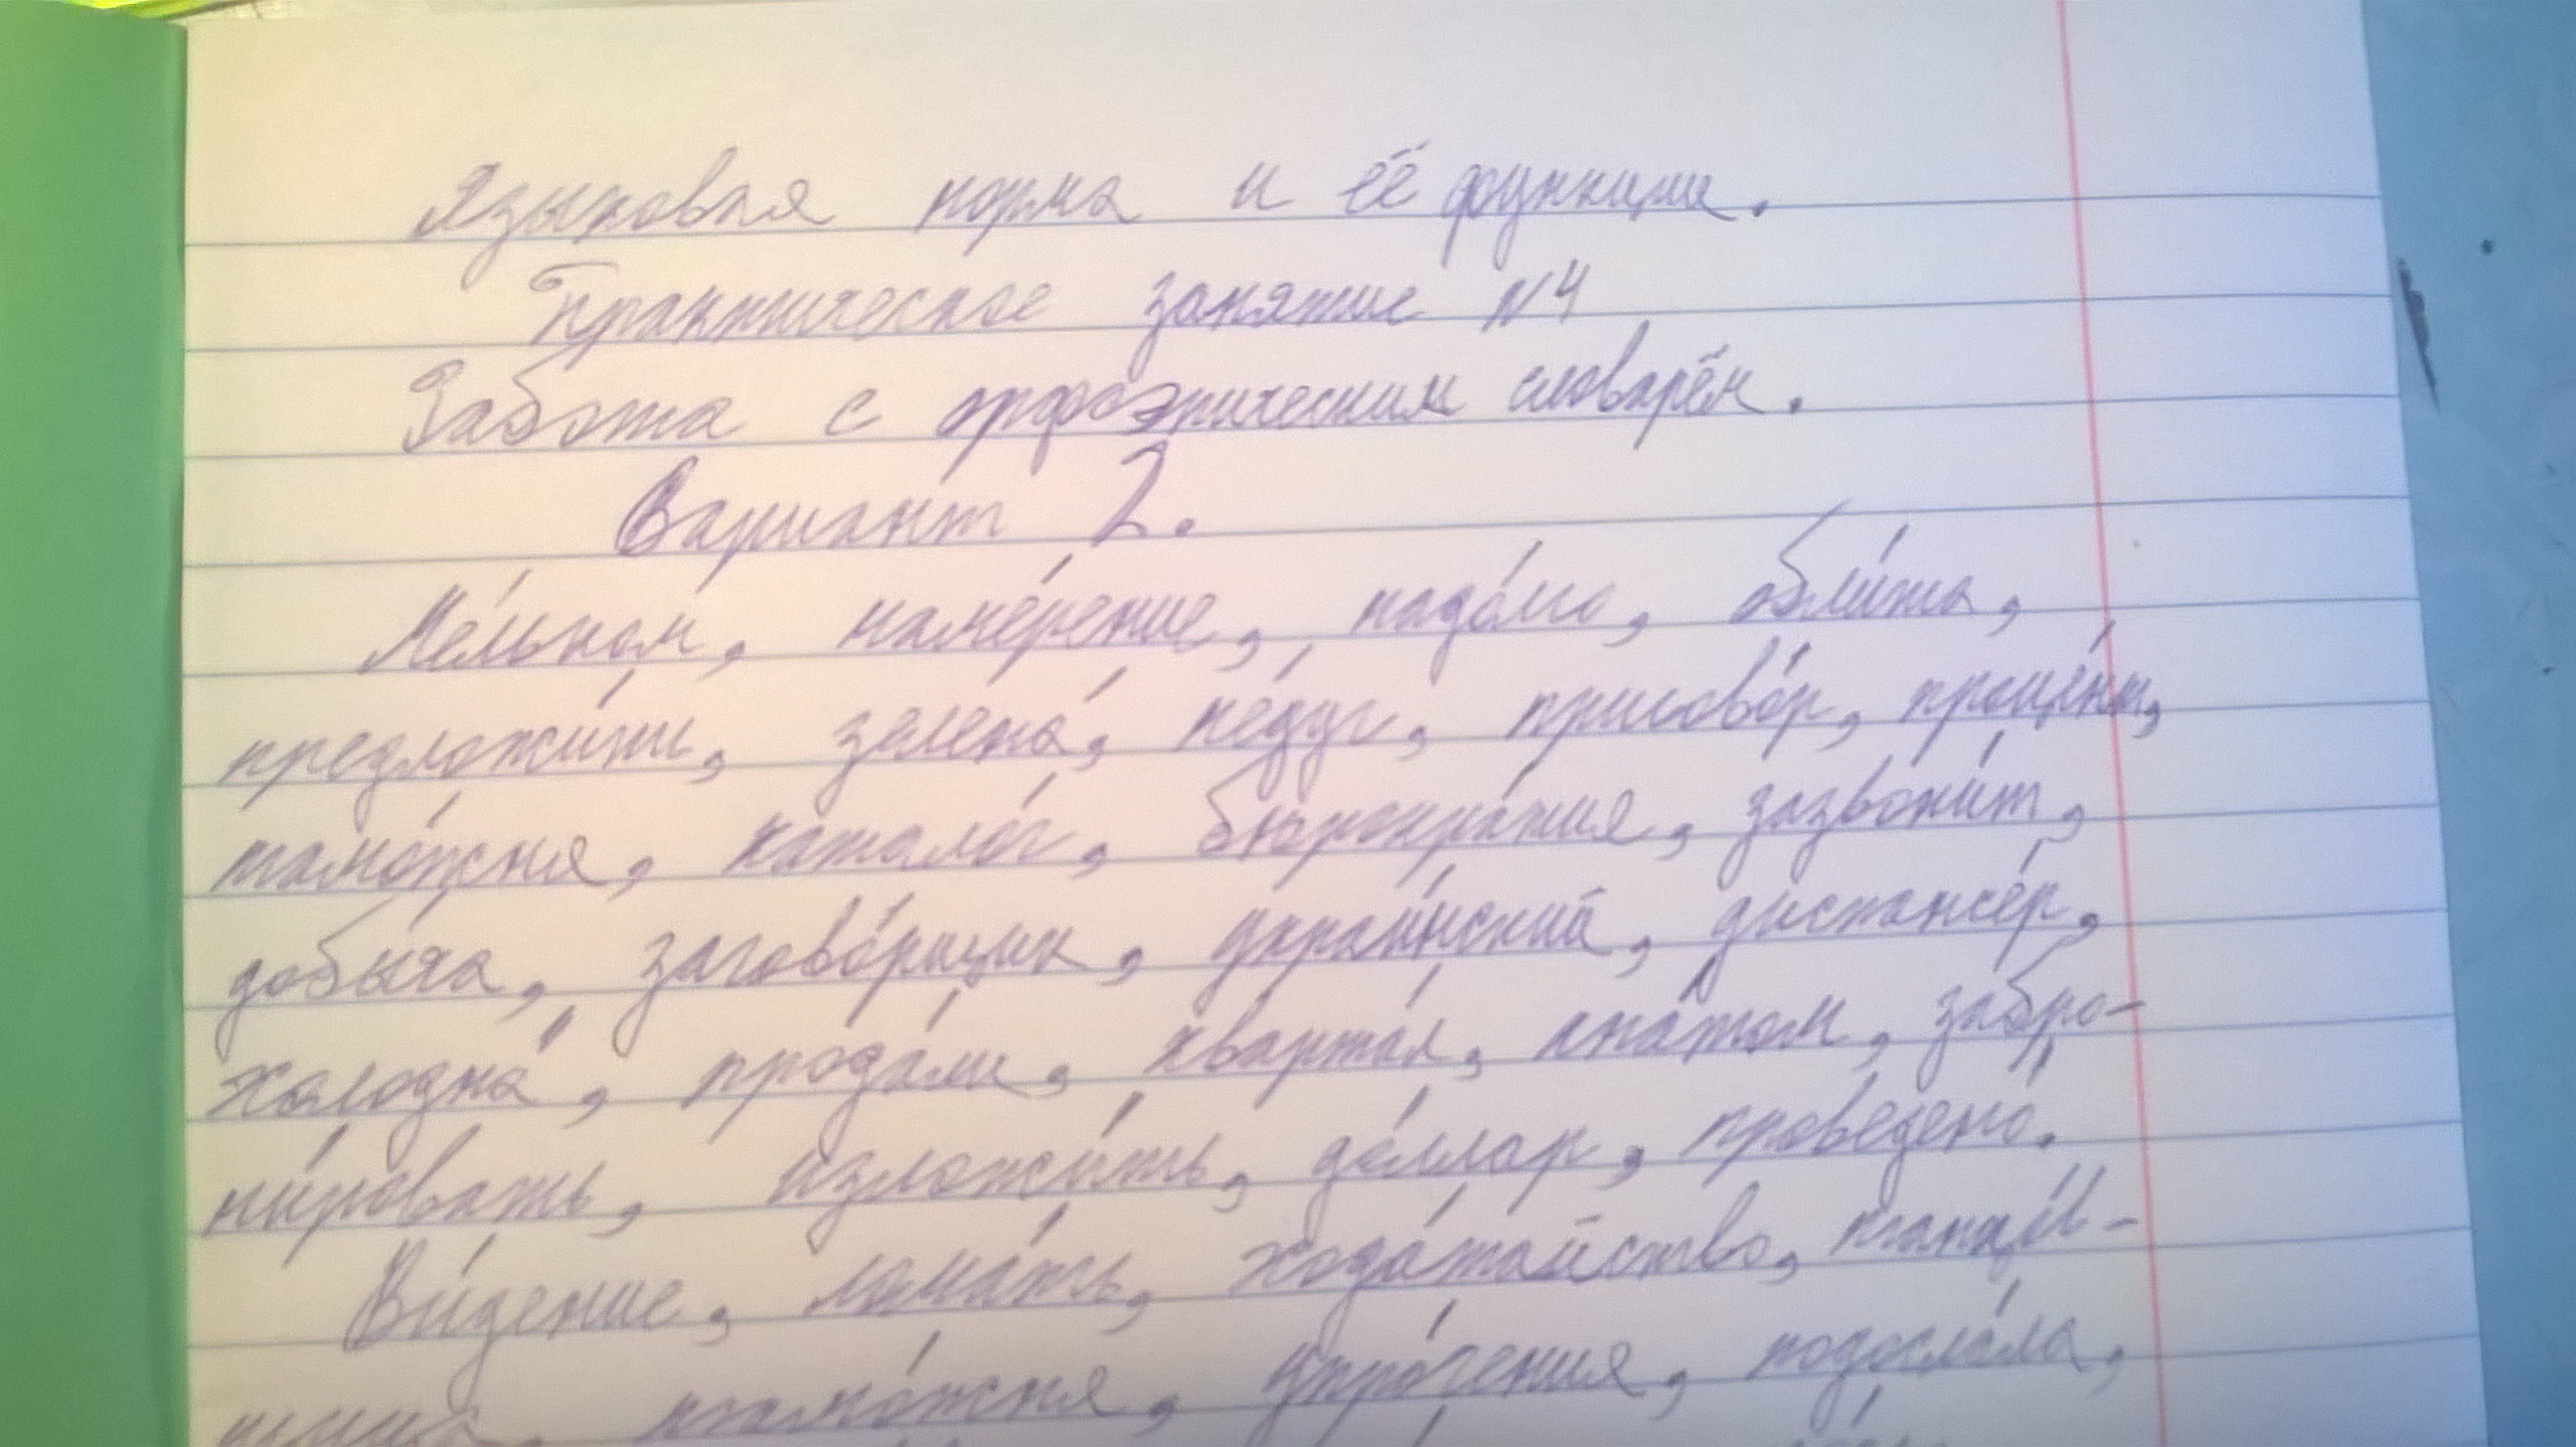 Языковая норма и её функции.
Практическое занятие №4
Работа с орфоэпическим словарём.
Вариант 2.
Ме́льком, наме́рение, надо́лго, обли́та,
предложи́ть, зелена́, не́дуг, пригово́р, проце́нт,
тамо́жня, катало́г, бюрокра́тия, зазвони́т,
добы́ча, загово́рщик, украи́нский, диспансе́р,
холодна́, прода́ли, кварта́л, ана́том, забро-
ни́ровать, изложи́ть, до́ллар, проведено́.
Ви́дение, лома́ть, хода́тайство, танцо́в-
щица, тамо́жня, упро́чения, подосла́ла,